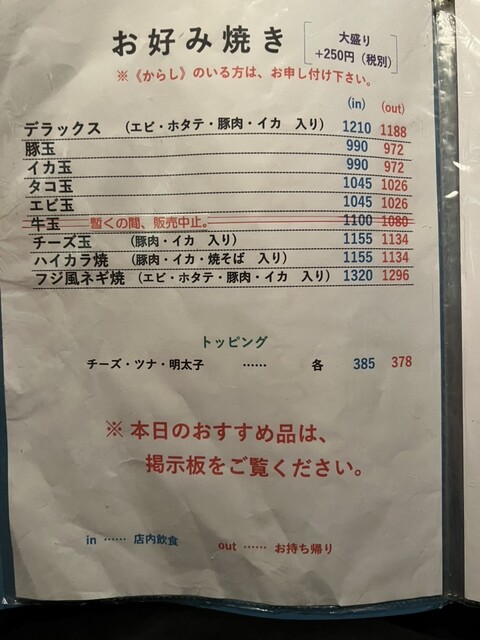 お好み焼き
大盛り
+250円（税別）
※《からし》のいる方は、お申し付け下さい。
(in) (out)
デラックス （エビ・ホタテ・豚肉・イカ 入り） 1210 1188
豚玉 990 972
イカ玉 990 972
タコ玉 1045 1026
エビ玉 1045 1026
牛玉 暫くの間、販売中止。 1100 1080
チーズ玉 （豚肉・イカ 入り） 1155 1134
ハイカラ焼 （豚肉・イカ・焼そば 入り） 1155 1134
フジ風ネギ焼 （エビ・ホタテ・豚肉・イカ 入り） 1320 1296
トッピング
チーズ・ツナ・明太子 …… 各 385 378
※ 本日のおすすめ品は、
掲示板をご覧ください。
in …… 店内飲食
out …… お持ち帰り